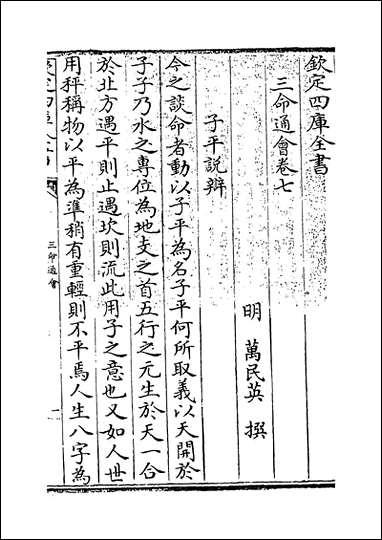 欽定四庫全書
三命通會卷七
明 萬民英 撰
子平説辯
今之談命者動以子平為名子平何所取義以天開於
子子乃水之專位為地支之首五行之元生於天一合
於北方遇平則止遇坎則流此用子之意也又如人世
用秤稱物以平為準稍有重輕則不平焉人生八字為
三命通會
一